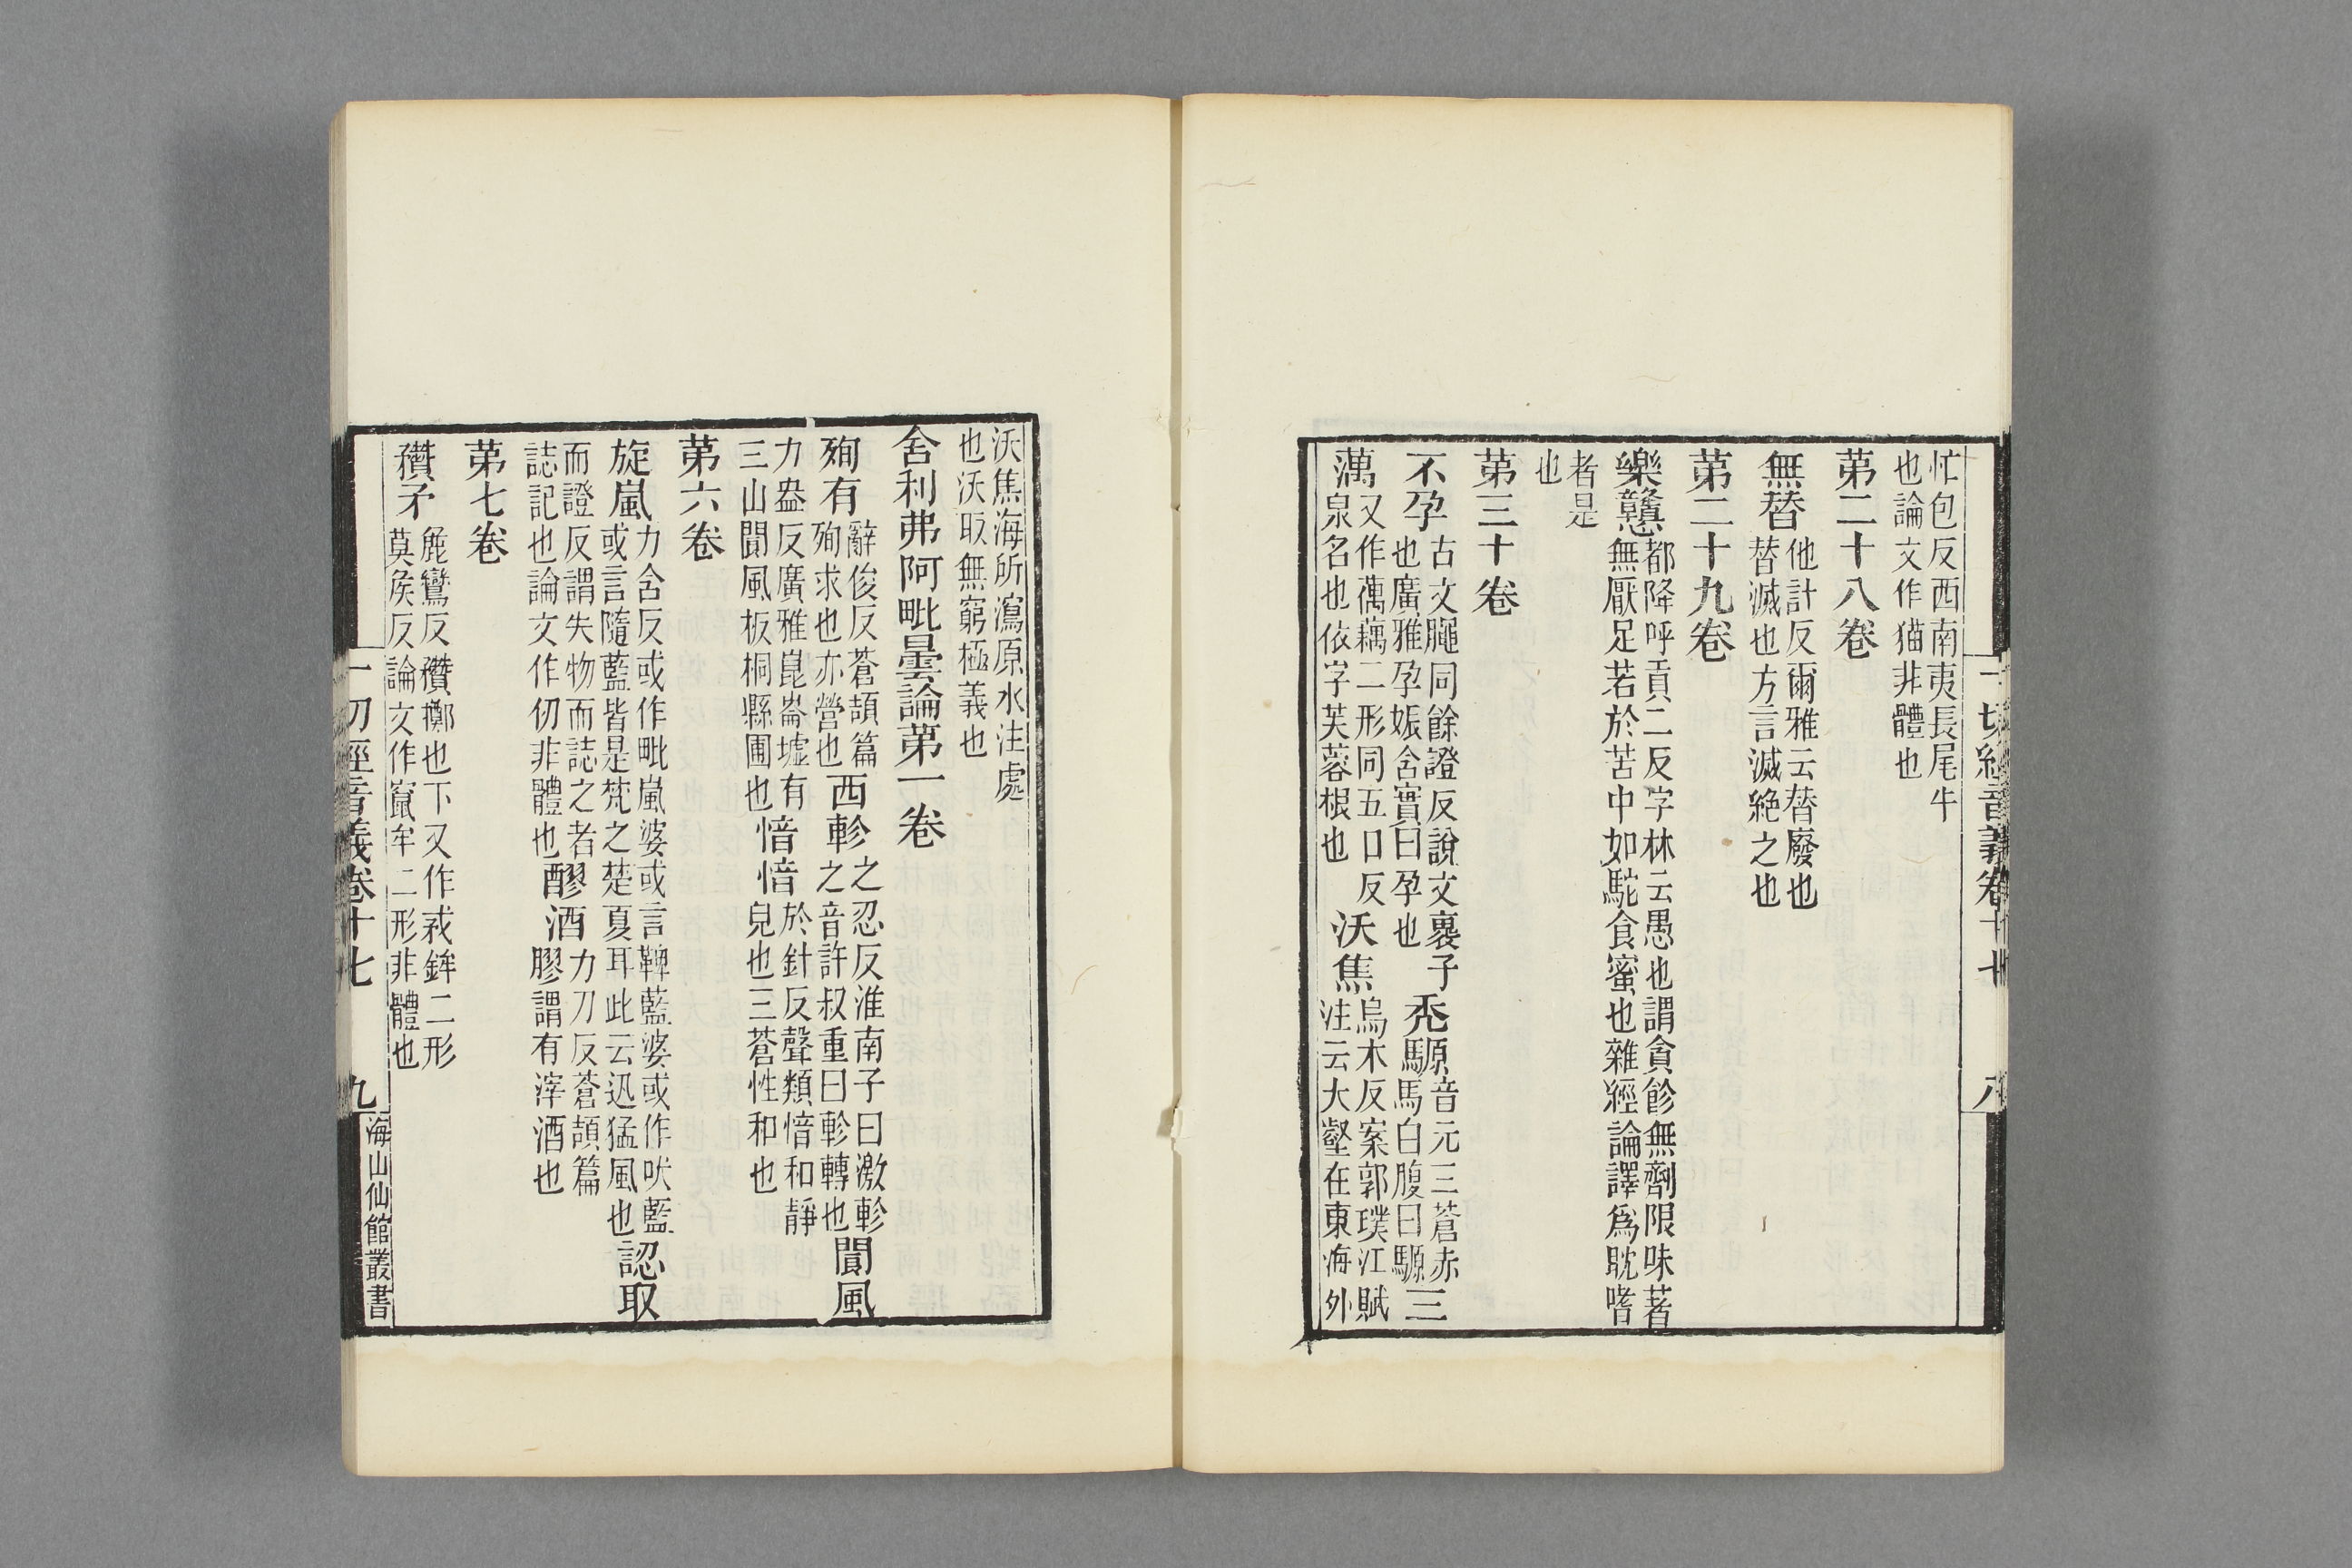 一切經音義卷十七 八
忙包反西南夷長尾牛
也論文作猫非體也
第二十八卷
無替他計反爾雅云替廢也
替滅也方言滅絶之也
第二十九卷
樂戇都降呼貢二反字林云愚也謂貪飻無劑限味著
無厭足若於苦中如駝食蜜也雜經論譯爲耽嗜
者是
也
第三十卷
不孕古文䐪同餘證反說文褱子
也廣雅孕娠含實曰孕也
禿騵音元三蒼赤
馬白腹曰騵三
蕅又作䕒藕二形同五口反
泉名也依字芙蓉根也
沃焦烏木反案郭璞江賦
注云大壑在東海外
沃焦海所瀉原水注處
也沃㕞無窮極義也
舍利弗阿毗曇論第一卷
殉有辭俊反蒼頡篇
殉求也亦營也
西軫之忍反淮南子曰激軫
之音許叔重曰軫轉也
閬風
力盎反廣雅崑崙墟有
三山閬風板桐縣圃也
愔愔於針反聲類愔和靜
皃也三蒼性和也
第六卷
旋嵐力含反或作毗嵐婆或言鞞藍婆或作吠藍
或言隨藍皆是梵之楚夏耳此云迅猛風也
認取
而證反謂失物而誌之者
誌記也論文作仞非體也
醪酒力刀反蒼頡篇
膠謂有滓酒也
第七卷
䂎矛麁鸞反䂎擲也下又作𢦧鉾二形
莫侯反論文作竄牟二形非體也
一切經音義卷十七 九
海山仙館叢書